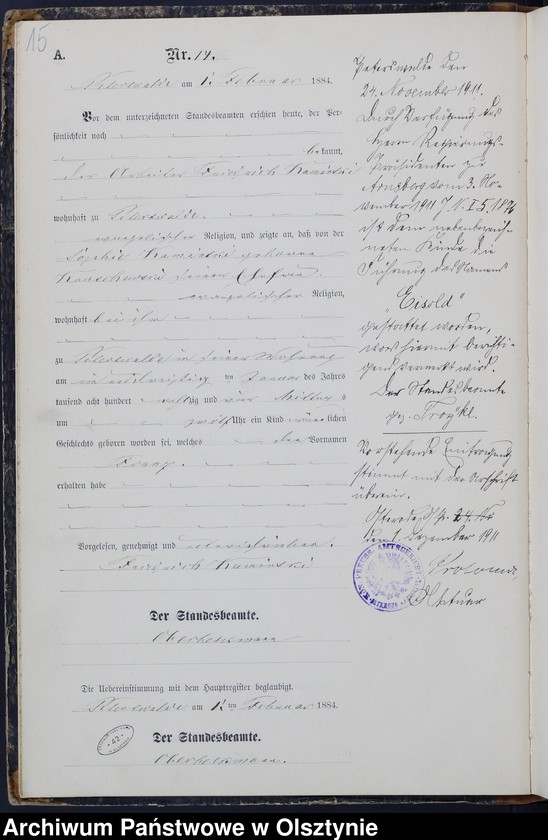 15
A.
Nr. 14.
Peterswalde am 1. Februar 1884.
Vor dem unterzeichneten Standesbeamten erschien heute, der Per-
sönlichkeit nach
bekannt,
der Arbeiter Friedrich Kaminski
wohnhaft zu Peterswalde.
evangelischer Religion, und zeigte an, daß von der
Sophie Kaminski geborene
seiner Ehefrau
evangelischer Religion,
wohnhaft bei ihm
zu Peterswalde in seiner Wohnung
am ein und dreißigsten Januar des Jahres
tausend acht hundert achtzig und vier Mittags
um zwölf Uhr ein Kind männlichen
Geschlechts geboren worden sei, welches den Vornamen
Franz.
erhalten habe
Vorgelesen, genehmigt und unterschrieben.
Friedrich Kaminski
Der Standesbeamte.
Die Uebereinstimmung mit dem Hauptregister beglaubigt.
Peterswalde am 1ten Februar 1884.
Der Standesbeamte.
Peterswalde den
24. November 1911.
Durch Verfügung des
Herrn Regierungs-
Präsidenten zu
Arnsberg vom 3. No-
vember 1911 J. N. I 5. 1876
ist dem nebenbezeich-
neten Kinde die
Führung des Namens
"Eisold"
gestattet worden,
was hiermit berichti-
gend vermerkt wird.
Der Standesbeamte
gez. Troykl.
Vorstehende Eintragung
stimmt mit der Urschrift
überein.
Osterode, O/Pr. 24. No
den 1. Dezember 1911
Aktuar
Archiwum Państwowe w Olsztynie